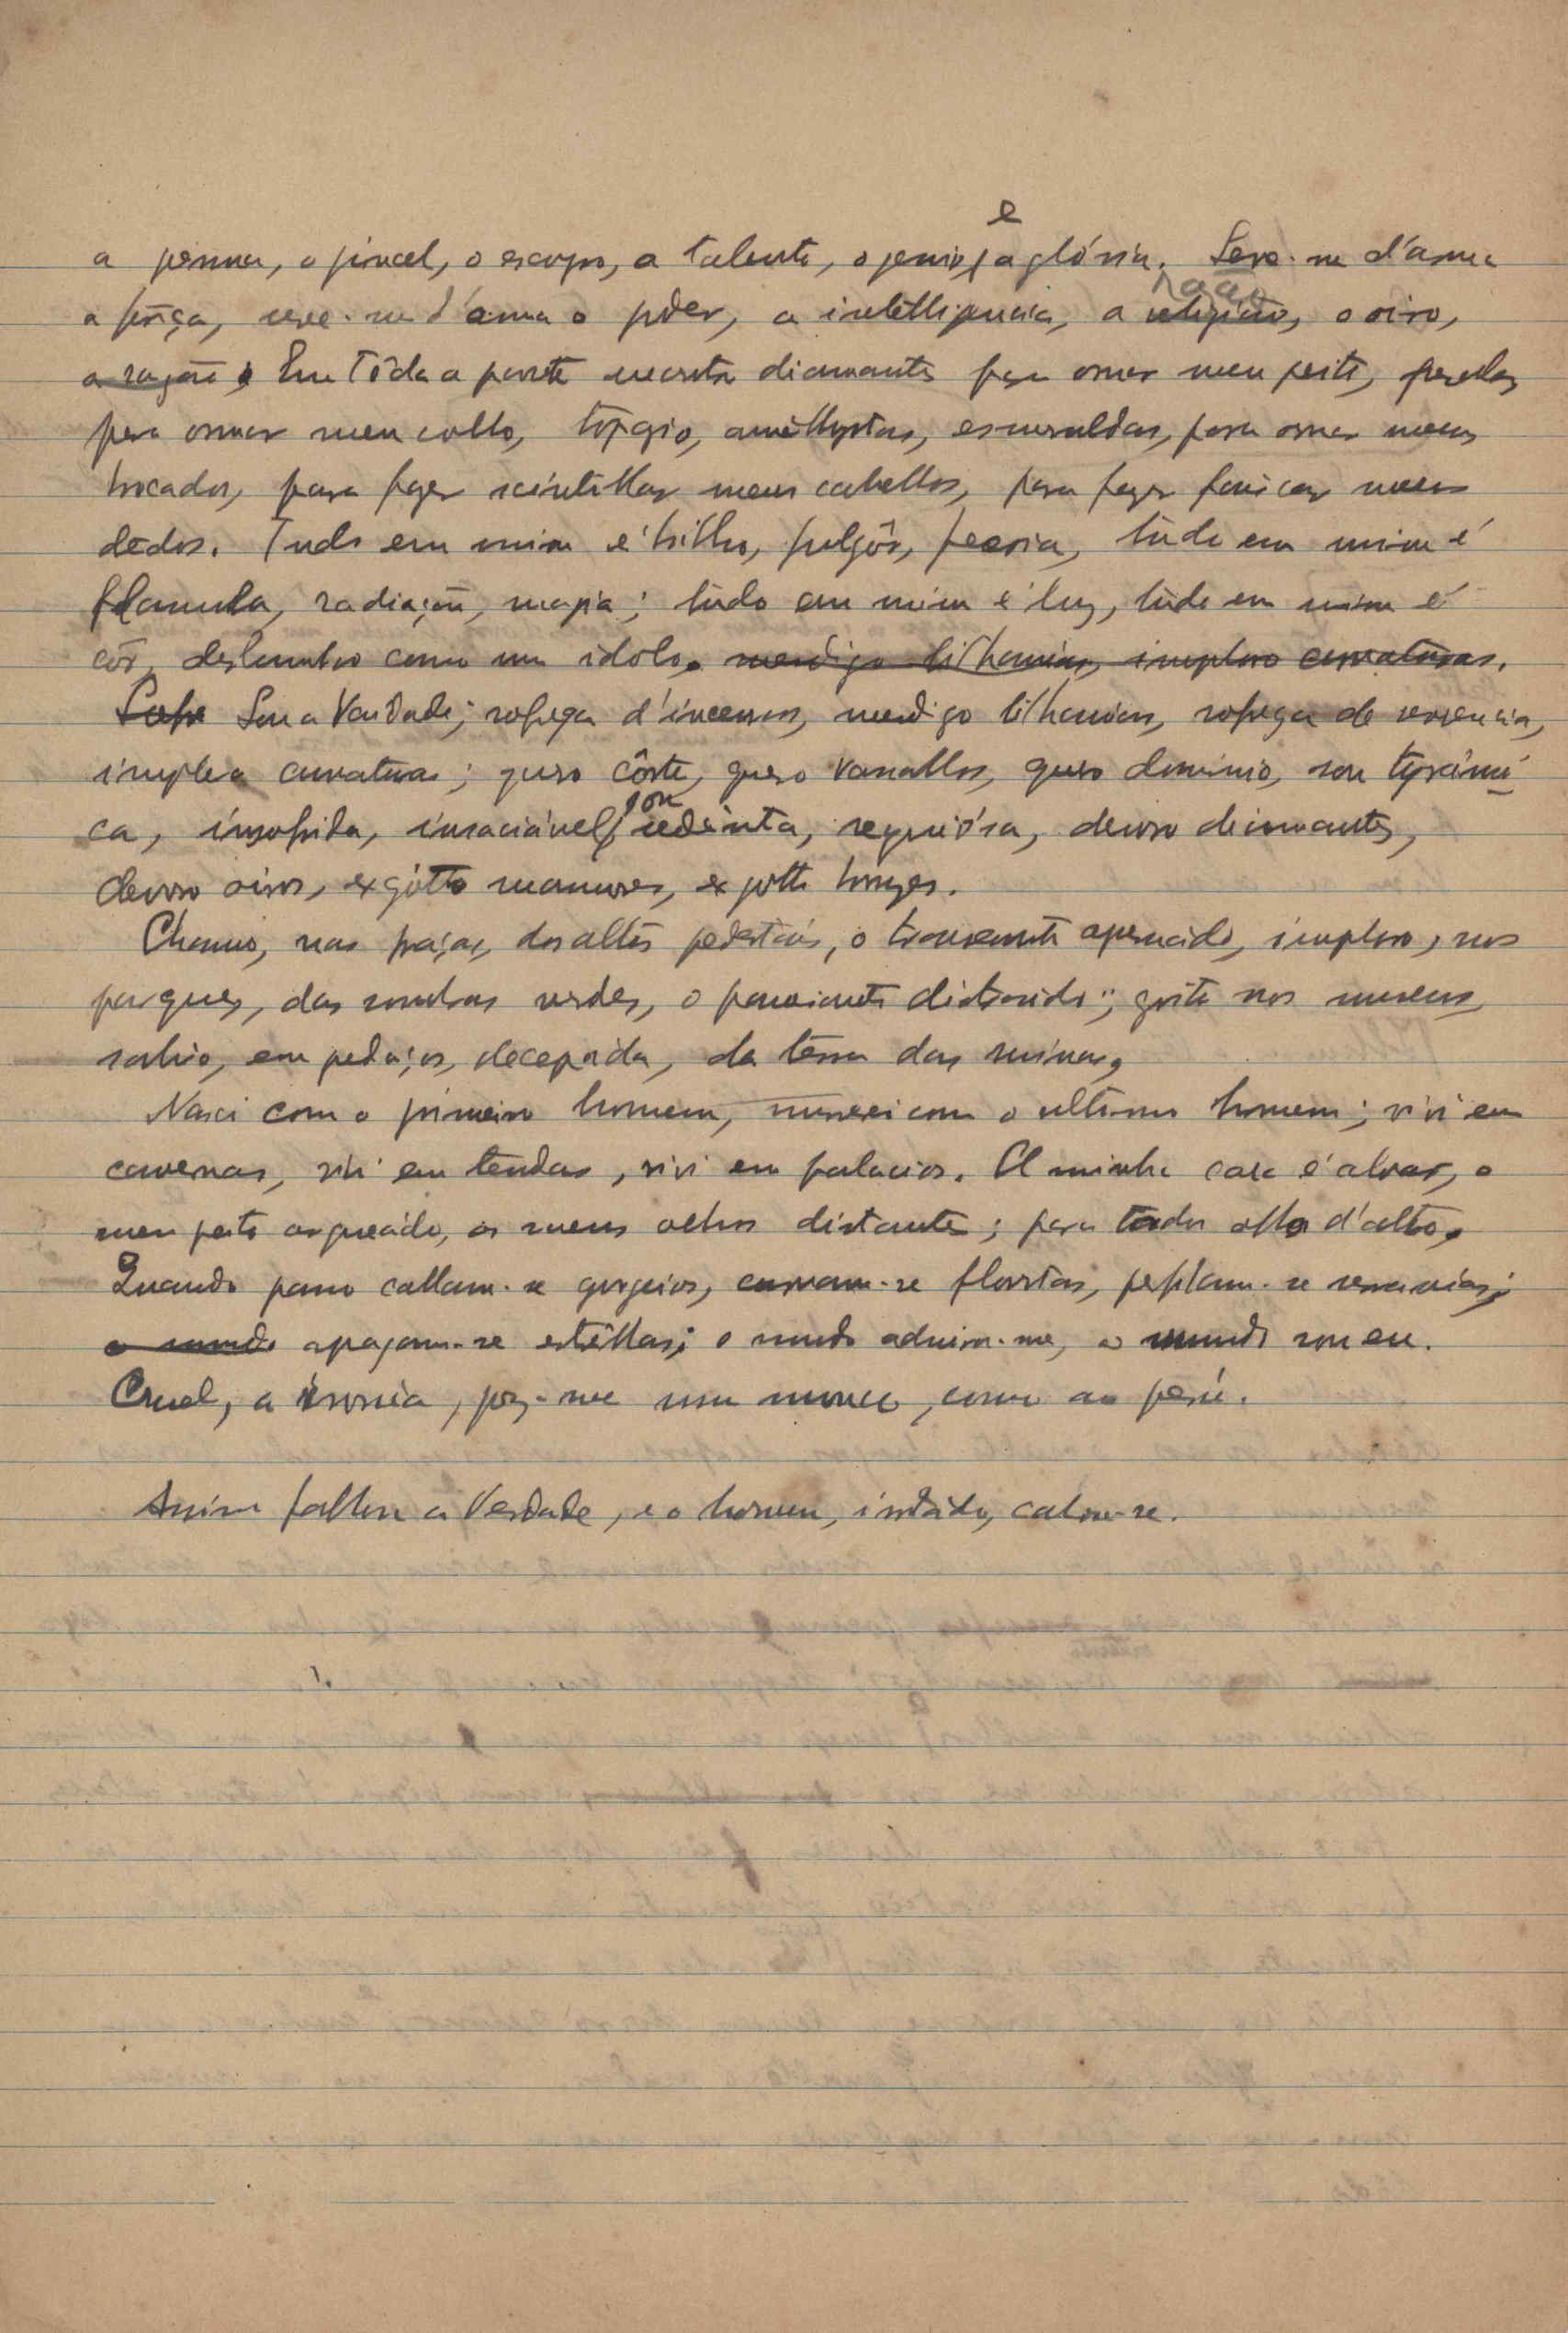 a penna, o pincel, o escopro, o talento, o genio, e a glória. Serve-me d'arma
a fôrça, serve-me d'arma o poder, a intelligencia, a religião, razão o oiro,
a razão. Em tôda a parte encontro diamantes para ornar meu peito, perolas
para ornar meu collo, topazio, amethystas, esmeraldas, para ornar meus
brocados, para fazer scintillar meus cabellos, para fazer faiscar meus
dedos. Tudo em mim é brilho, fulgôr, feeria, tudo em mim é
flamula, radiação, magia; tudo em mim é luz, tudo em mim é
côr, deslumbro como um idolo. mendigo lithanias, imploro curvaturas.
Sou a Vaidade; sofrega d'incensos, mendigo lithanias, sofrega de reverencia,
imploro curvaturas; quero côrte, quero vassallos, quero dominio, sou tyranni
ca, insoffrida, insaciável, sou sedenta, sequiósa, devoro diamantes,
devoro oiros, exgótto marmores, exgotto bronzes.
Chamo, nas praças, dos altos pedestais, o transeunte apressado, imploro, nos
parques, das sombras verdes, o passeiante distraido; grito nos museus,
sahio, em pedaços, decepada, da terra das ruinas,
Nasci com o primeiro homem, morrerei com o ultimo homem; vivi em
cavernas, vivi em tendas, vivi em palacios. A minha casa é alvar, o
meu peito arqueado, os meus olhos distantes; para todos olho d'alto.
Quando passo callam-se gorgeios, curvam-se florstas, perfilam-se serranias;
o mundo apagam-se estrêllas; o mundo admira-me, o mundo sou eu.
Cruel, a ironia, poz-me um monco, como ao perú.
Assim fallou a Verdade, e o homem, irritado, calou-se.